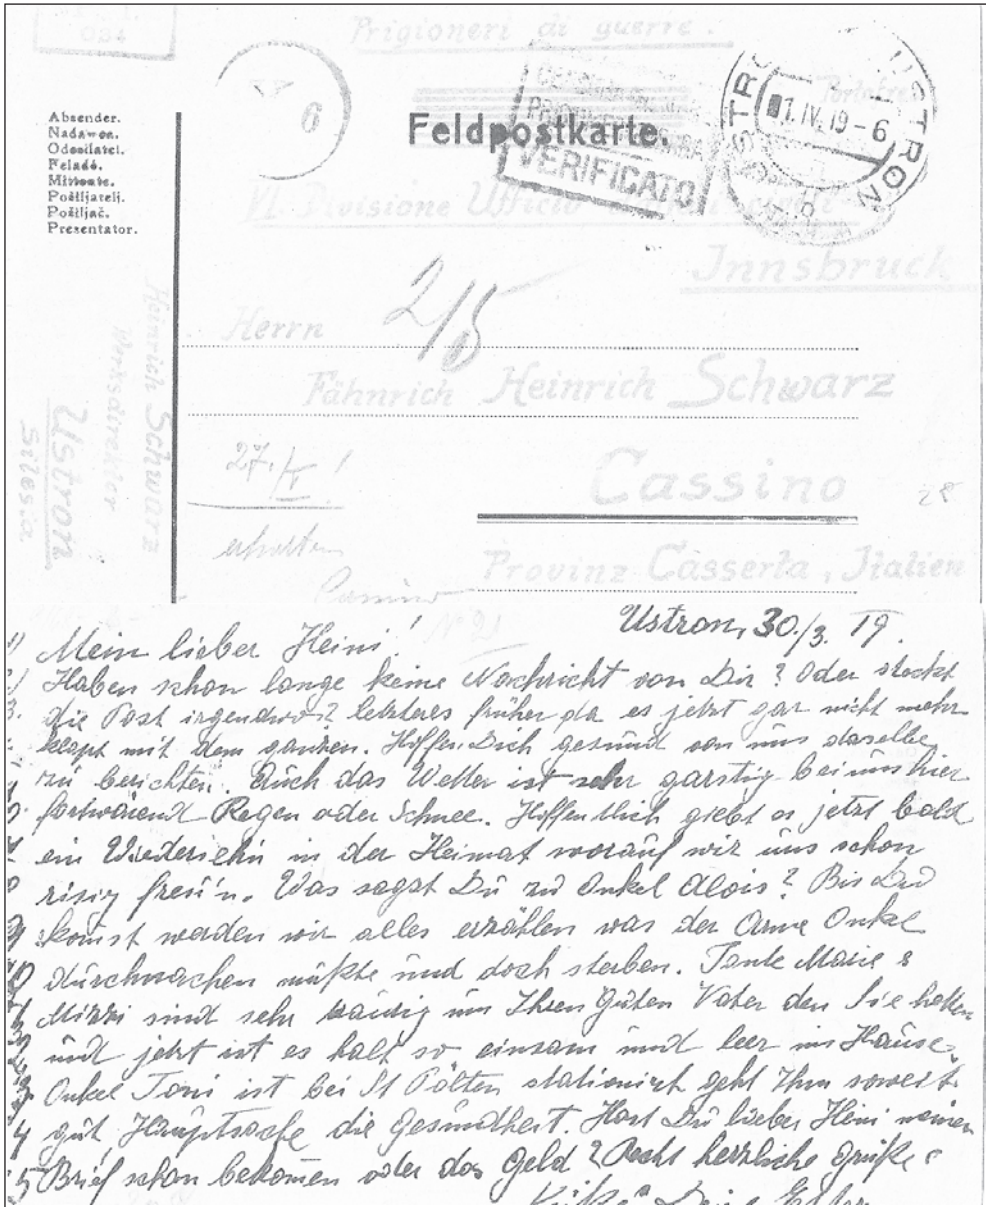 Prigioneri di guerre.
Portofre
6
Feldpostkarte.
VERIFICATO
USTRON
1.IV.19-6
Absender.
Nadawca.
Odesílatel.
Feladó.
Mittente.
Pošiljatelj.
Pošiljač.
Presentator.
VI. Divisione Ufficio
Innsbruck
2/5
Herrn
Fähnrich Heinrich Schwarz
27./V!
erhalten
Cassino
28
Provinz Casserta, Italien
Heinrich Schwarz
Werksdirektor
Ustroń
Silesia
Ustron, 30./3. 19.
1) Mein lieber Heini!
Haben schon lange keine Nachricht von Dir? Oder steckt
die Post irgendwo? letzteres früher da es jetzt gar nicht mehr
klapt mit dem ganzen. Hoffen Dich gesund von uns daselbe
zu berichten. Auch das Wetter ist sehr garstig bei uns hier
fortwärend Regen oder Schnee. Hoffentlich giebt es jetzt bald
ein Wiedersehn in der Heimat worauf wir uns schon
risig freu'n. Was sagst Du zu Onkel Alois? Bis Du
komst werden wir alles erzählen was der Arme Onkel
10 durchmachen mußte und doch sterben. Tante Marie &
Mizzi sind sehr traurig um Ihren Guten Vater den Sie hatten
und jetzt ist es halt so einsam und leer im Hause.
Onkel Toni ist bei St Pölten stationirt geht Ihm soweit
4 gut, Hauptsache die Gesundheit. Hast Du lieber Heini meinen
5 Brief schon bekomen oder das Geld? Recht herzliche Grüße &
Küße Deine Eltern